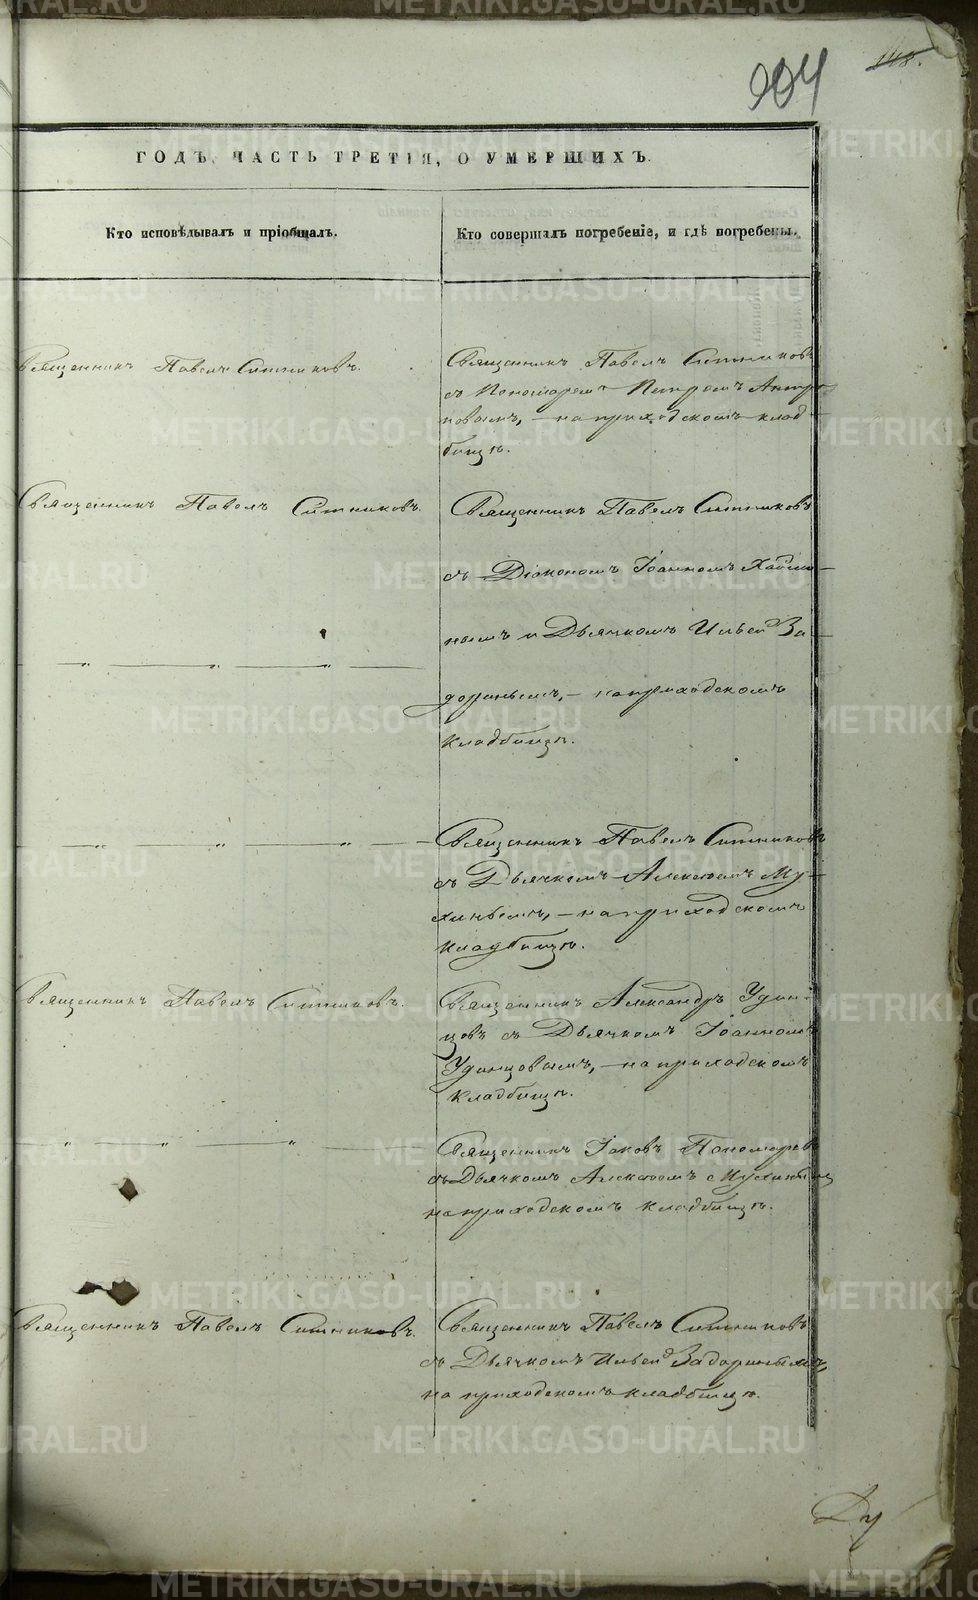 904
118.
ГОДЪ, ЧАСТЬ ТРЕТІЯ, О УМЕРШИХЪ.
Кто исповѣдывалъ и пріобщалъ.
Кто совершалъ погребеніе, и гдѣ погребены.
Священникъ Павелъ Ситниковъ.
Священникъ Павелъ Ситниковъ
съ Пономаремъ Петромъ Антро
повымъ, – на приходскомъ клад
бищѣ.
Священникъ Павелъ Ситниковъ.
Священникъ Павелъ Ситниковъ
съ Діакономъ Іоанномъ
нымъ и Дьячкомъ Ильей За
доринымъ, – на приходскомъ
кладбищѣ.
Священникъ Павелъ Ситниковъ
съ Дьячкомъ Алексѣемъ Му-
хинымъ, – на приходскомъ
кладбищѣ.
Священникъ Павелъ Ситниковъ.
Священникъ Александръ Удин-
цовъ съ Дьячкомъ Іоанномъ
Удинцовымъ, – на приходскомъ
кладбищѣ.
Священникъ Іаковъ Пономаревъ
съ Дьячкомъ Алексѣемъ Мухинымъ
на приходскомъ кладбищѣ.
Священникъ Павелъ Ситниковъ.
Священникъ Павелъ Ситниковъ
съ Дьячкомъ Ильей Задоринымъ,
на приходскомъ кладбищѣ.
Ду
METRIKI.GASO-URAL.RU